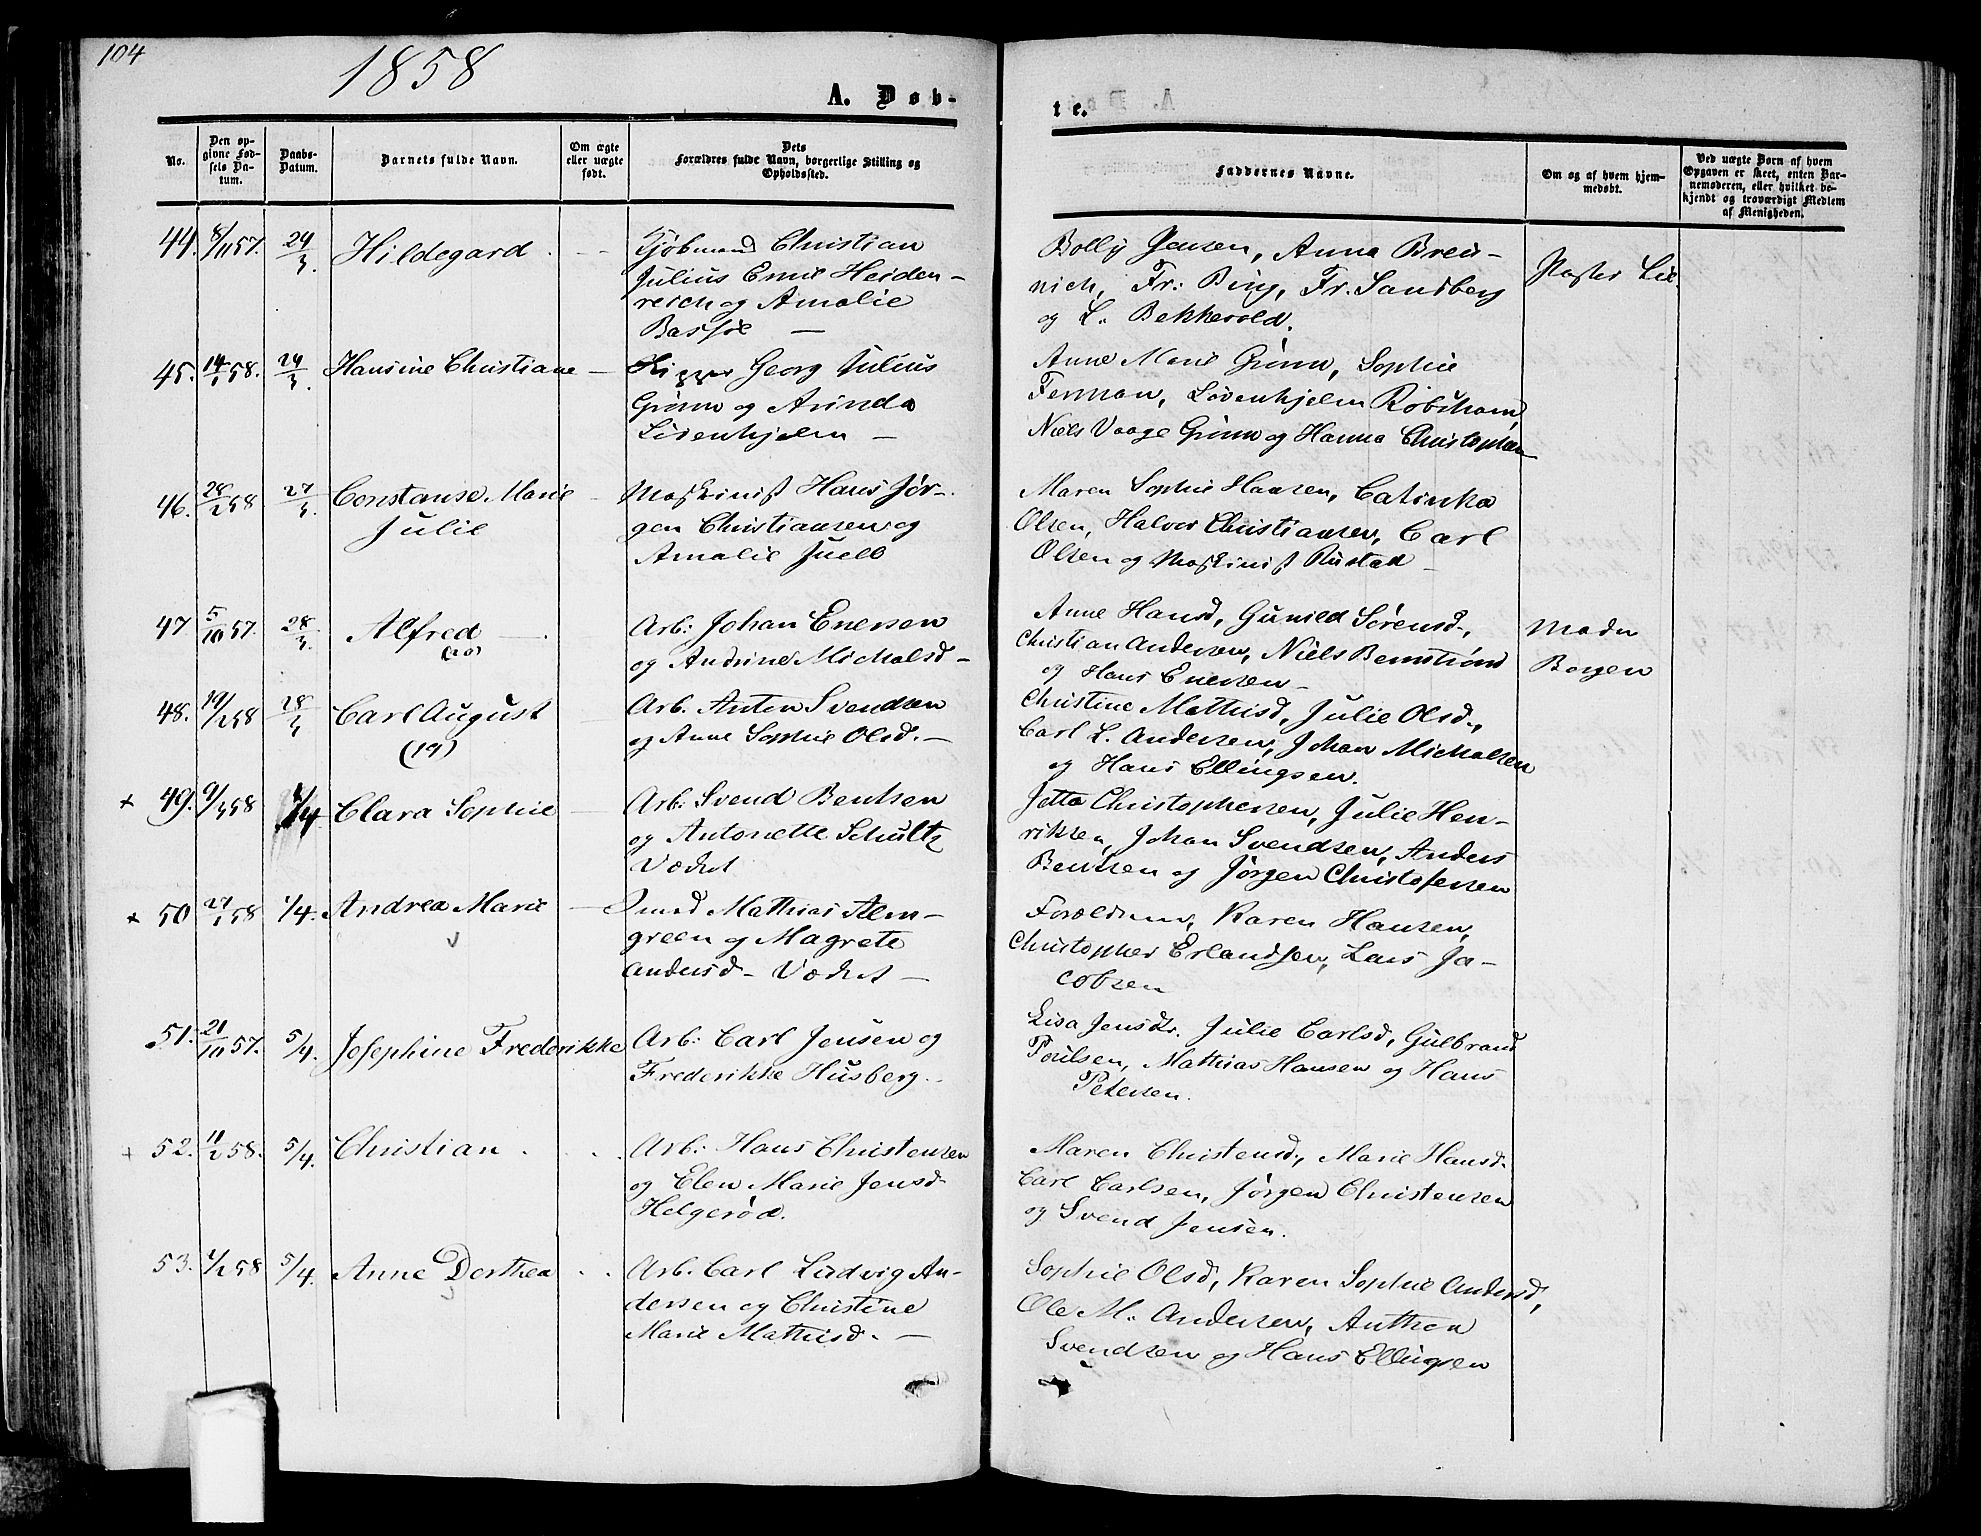 104
1858
A. Døb-
te.
No.
Den op-
givne Fød-
sels Da-
tum.
Daabs-
Datum.
Barnets fulde Navn.
Om ægte
eller uægte
født.
Dets
Forældres fulde Navn, borgerlige Stilling og
Opholdssted.
Faddernes Navne.
Om og af hvem hjem-
medøbt.
Ved uægte Børn af hvem
Opgaven er skeet, enten Bar-
nemoderen, eller hvilket be-
kjendt og troværdigt Medlem
af Menigheden.
44. 8/11 57. 24/3. Hildegard
Kjøbmand Christian
Julius Emil Heiden-
reich og Amalie
Bassøe
Bolly Jensen, Anna Breu-
nich, Fr: Bing, Fr. Sandberg
og L. Bekkevold.
Paster Lie
45. 14/1 58. 24/3. Hansine Christiane
Georg Julius
Grönn og Arinda
Lövenhjelm
Anne Marie Grönn, Sophie
Ferman, Lövenhjelm Röbsham,
Niels Vaage Grönn og Hanna Christophersen
46. 28/2 58 27/3. Constanse Marie
Julie
Maskinist Hans Jør-
gen Christiansen og
Amalie Juell
Maren Sophie Hansen, Catinka
Olsen, Halvor Christiansen, Carl
Olsen og Maskinist Rustad
47 5/10 57. 28/3. Alfred
(20)
Arb: Johan Enersen
og Andrine Micholsd
Anne Hansd, Gunild Sörensd.,
Christian Andersen, Niels Bernströmd
og Hans Enersen
Moder
Borgen
48. 19/1 58 28/3 Carl August
(19)
Arb. Anton Svendsen
og Anne Sophie Olsd.
Christine Mathisd, Julie Olsd.,
Carl L. Andersen, Johan Micholsen
og Hans Ellingsen.
x 49. 9/1 58 1/4 Clara Sophie
Arb: Svend Bentsen
og Antonette Schultz
Vædret
Jetta Christophersen, Julie Hen-
riksen, Johan Svendsen, Anders
Bentsen og Jörgen Christofersen
x 50 27/1 58 1/4. Andrea Marie
Smed Mathias Alm-
green og Magrete
Andersd - Vædret
Forældrene, Karen Hansen,
Christopher Erlandsen, Lars Ja-
cobsen
51. 21/10 57. 5/4. Josephine Frederikke
Arb: Carl Jensen og
Frederikke Husberg.
Lisa Jensdr. Julie Carlsd, Gulbrand
Poulsen, Mathias Hansen og Hans
Petersen.
52. 11/2 58. 5/4. Christian
Arb: Hans Christensen
og Elen Marie Jensd
Helgerød.
Maren Christensd., Marie Hansd.
Carl Carlsen, Jörgen Christensen
og Svend Jensen.
53. 1/2 58 5/4. Anne Dorthea
Arb. Carl Ludvig An-
dersen og Christine
Marie Mathisd.
Sophie Olsd, Karen Sophie Andersd,
Ole M. Andersen, Anthon
Svendsen og Hans Ellingsen